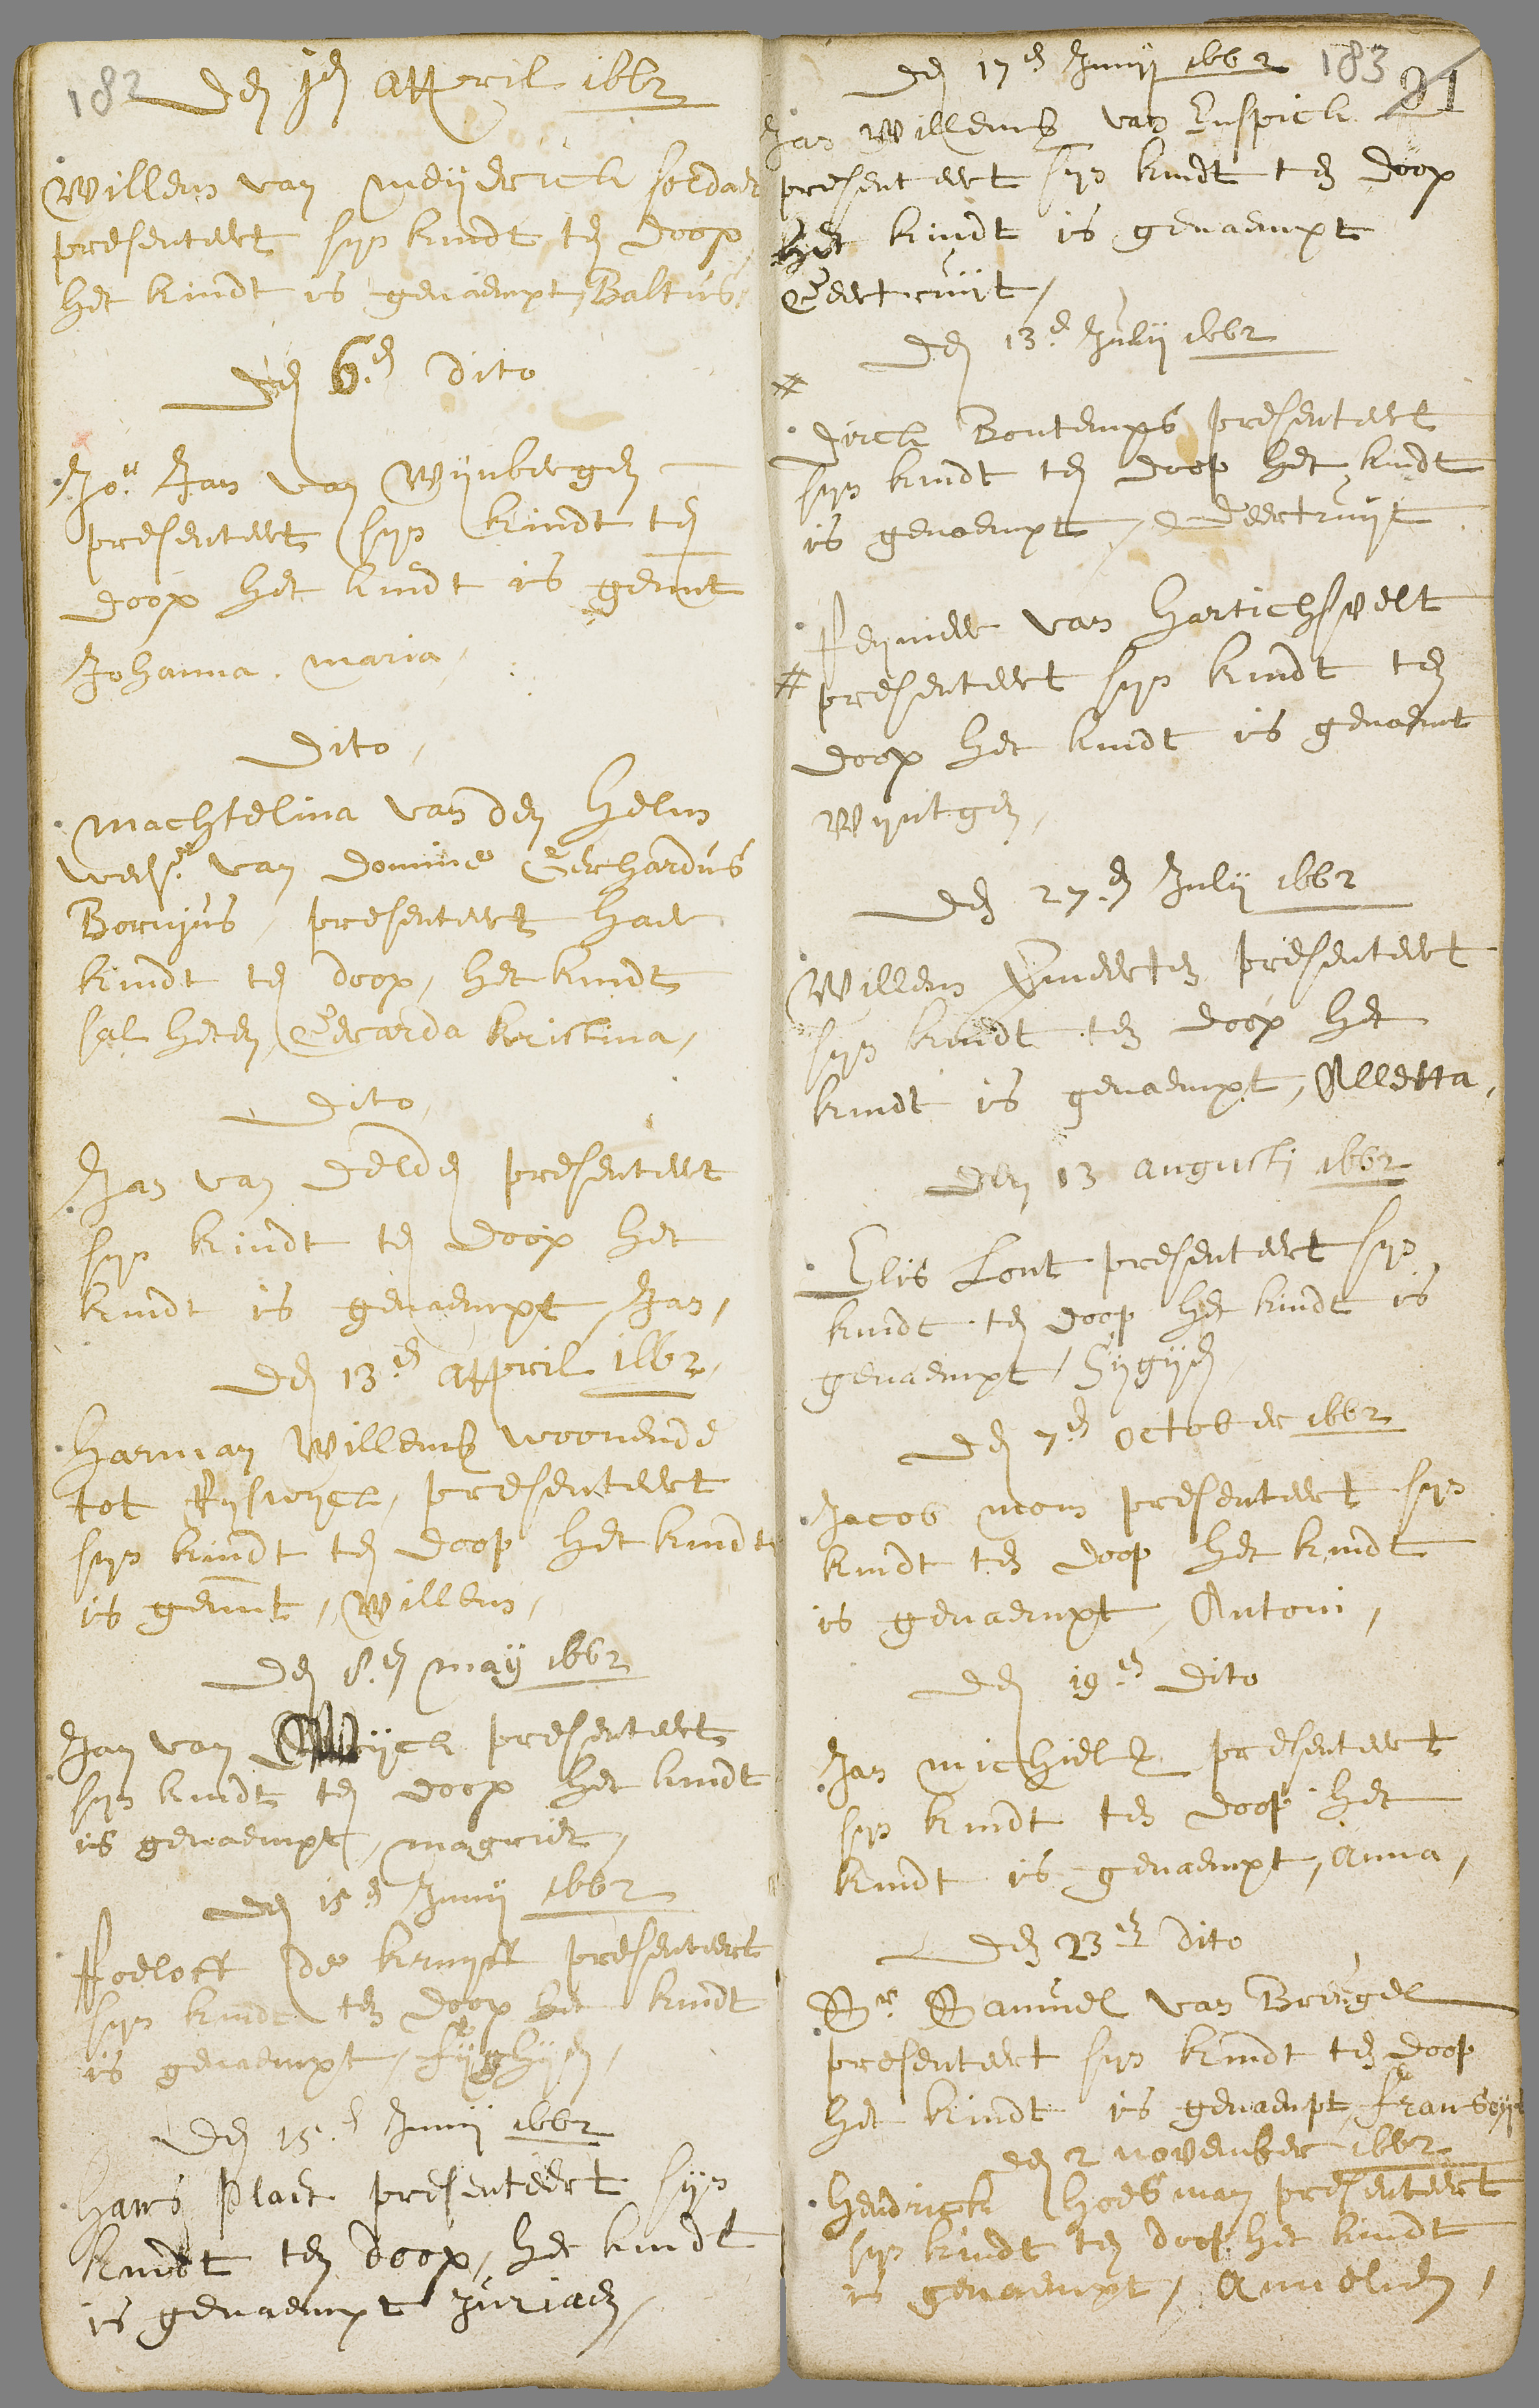 182
Den jen Appril 1662
Willem van Meyderick soldaet
presenteert syn kindt ten doop
het kindt is genaempt, Baltus,
Den 6en dito
Jor Jan van Wynbergen
presenteert syn kindt ten
doop het kindt is genmt
Johanna Maria,
Dito,
Machtelina van den Helm
van Domine Gerhardus
Bornyus, presenteert haer
kindt ten doop, het kindt
sal heten, Gerarda kristina,
Dito,
Jan van Delden presenteert
syn kindt ten doop het
kindt is genaempt, Jan,
Den 13en Appril 1662,
Harman Willems woonende
tot Ryswyck, presenteert
syn kindt ten doop het kindt
is genmt, Willem,
Den 8en may 1662
Jan van presenteert
syn kindt ten doop het kindt
is genaempt, magriet,
Den 15en Junij 1662
Roeloff de kruyff presenteert
syn kindt ten doop het kindt
is genaempt, fijghijen,
Den 15en Junij 1662
Hans Plaet presenteert syn
kindt ten doop, het kindt
is genaempt Juriaen,
183
21
Den 17en Junij 1662
Jan Willems van Enspick
presenteert syn kindt ten doop
het kindt is genaempt
Geertruijt,
Den 13en Julij 1662
#
Dirck Bontemps presenteert
syn kindt ten doop het kindt
is genaempt, Geertruyt
Reynier van Hartichsvelt
# presenteert syn kindt ten
doop het kindt is genaemt
Wyntgen,
Den 27en Julij 1662
Willem Emerten presenteert
syn kindt ten doop het
kindt is genaempt, Alletta,
Den 13 augusti 1662
Elis Lont presenteert syn
kindt ten doop het kindt is
genaempt, Sijgijen
Den 7en october 1662
Jacob mom presenteert syn
kindt ten doop het kindt
is genaempt, Antoni,
Den 19en dito
Jan michiels presenteert
syn kindt ten doop het
kindt is genaempt, anna,
Den 23en dito
Sr Samuel van Breugel
presenteert syn kindt ten doop
het kindt is genaempt, fransoys
den 2 november 1662
Hendrick Hoesman presenteert
syn kindt ten doop het kindt
is genaempt, Annelien,